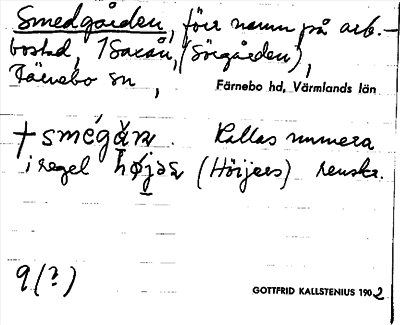 Smedgården, förr namn på arb.-
bostad, 1 Saxån, (Sörgården),
Färnebo sn,
Färnebo hd, Värmlands län
† smégá̱n. Kallas numera
i regel hø̱jəs (Höijers) renskr.
9(?)
GOTTFRID KALLSTENIUS 1902